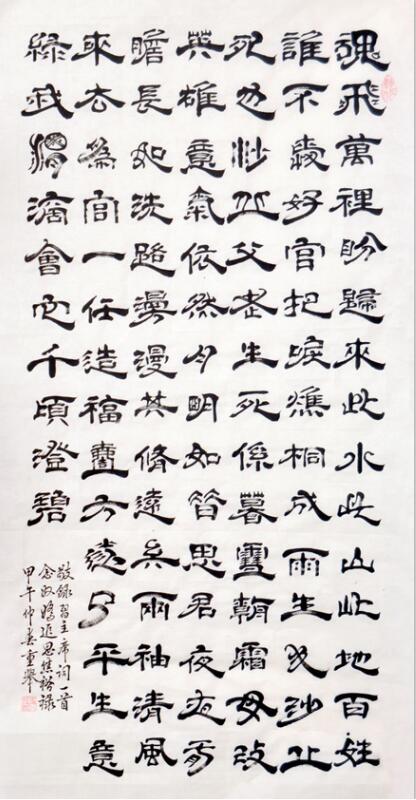 魂飛萬裡盼歸來此水此山此地百姓
誰不愛好官把淚焦桐成雨生也沙丘
死也沙丘父老生死係暮雪朝霜毋改
英雄意氣依然月明如昔思君夜夜肝
膽長如洗路漫漫其脩遠矣兩袖清風
來去為官一任造福壹方遂了平生意
綠我涓滴會它千頃澄碧
敬錄習主席詞一首
念奴嬌追思焦裕祿
甲午仲春重